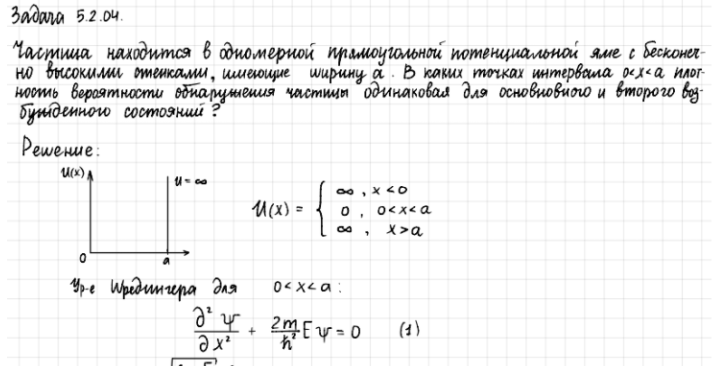 Задача 5.2.04.
Частица находится в одномерной прямоугольной потенциальной яме с бесконеч-
но высокими стенками, имеющие ширину a. В каких точках интервала 0<x<a плот-
ность вероятности обнаружения частицы одинаковая для основновного и второго воз-
бужденного состояний?
Решение:
U(x)
U=∞
0
a
U(x) = { ∞, x<0
0, 0<x<a
∞, x>a
Ур-е Шредингера для 0<x<a:
∂²Ψ/∂x² + 2m/ħ² EΨ = 0 (1)